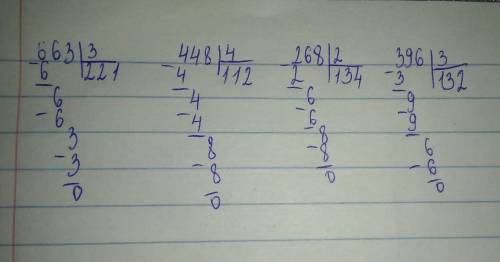 663 | 3
- 6 | 221
6
- 6
3
- 3
0
448 | 4
- 4 | 112
4
- 4
8
- 8
0
268 | 2
- 2 | 134
6
- 6
8
- 8
0
396 | 3
- 3 | 132
9
- 9
6
- 6
0